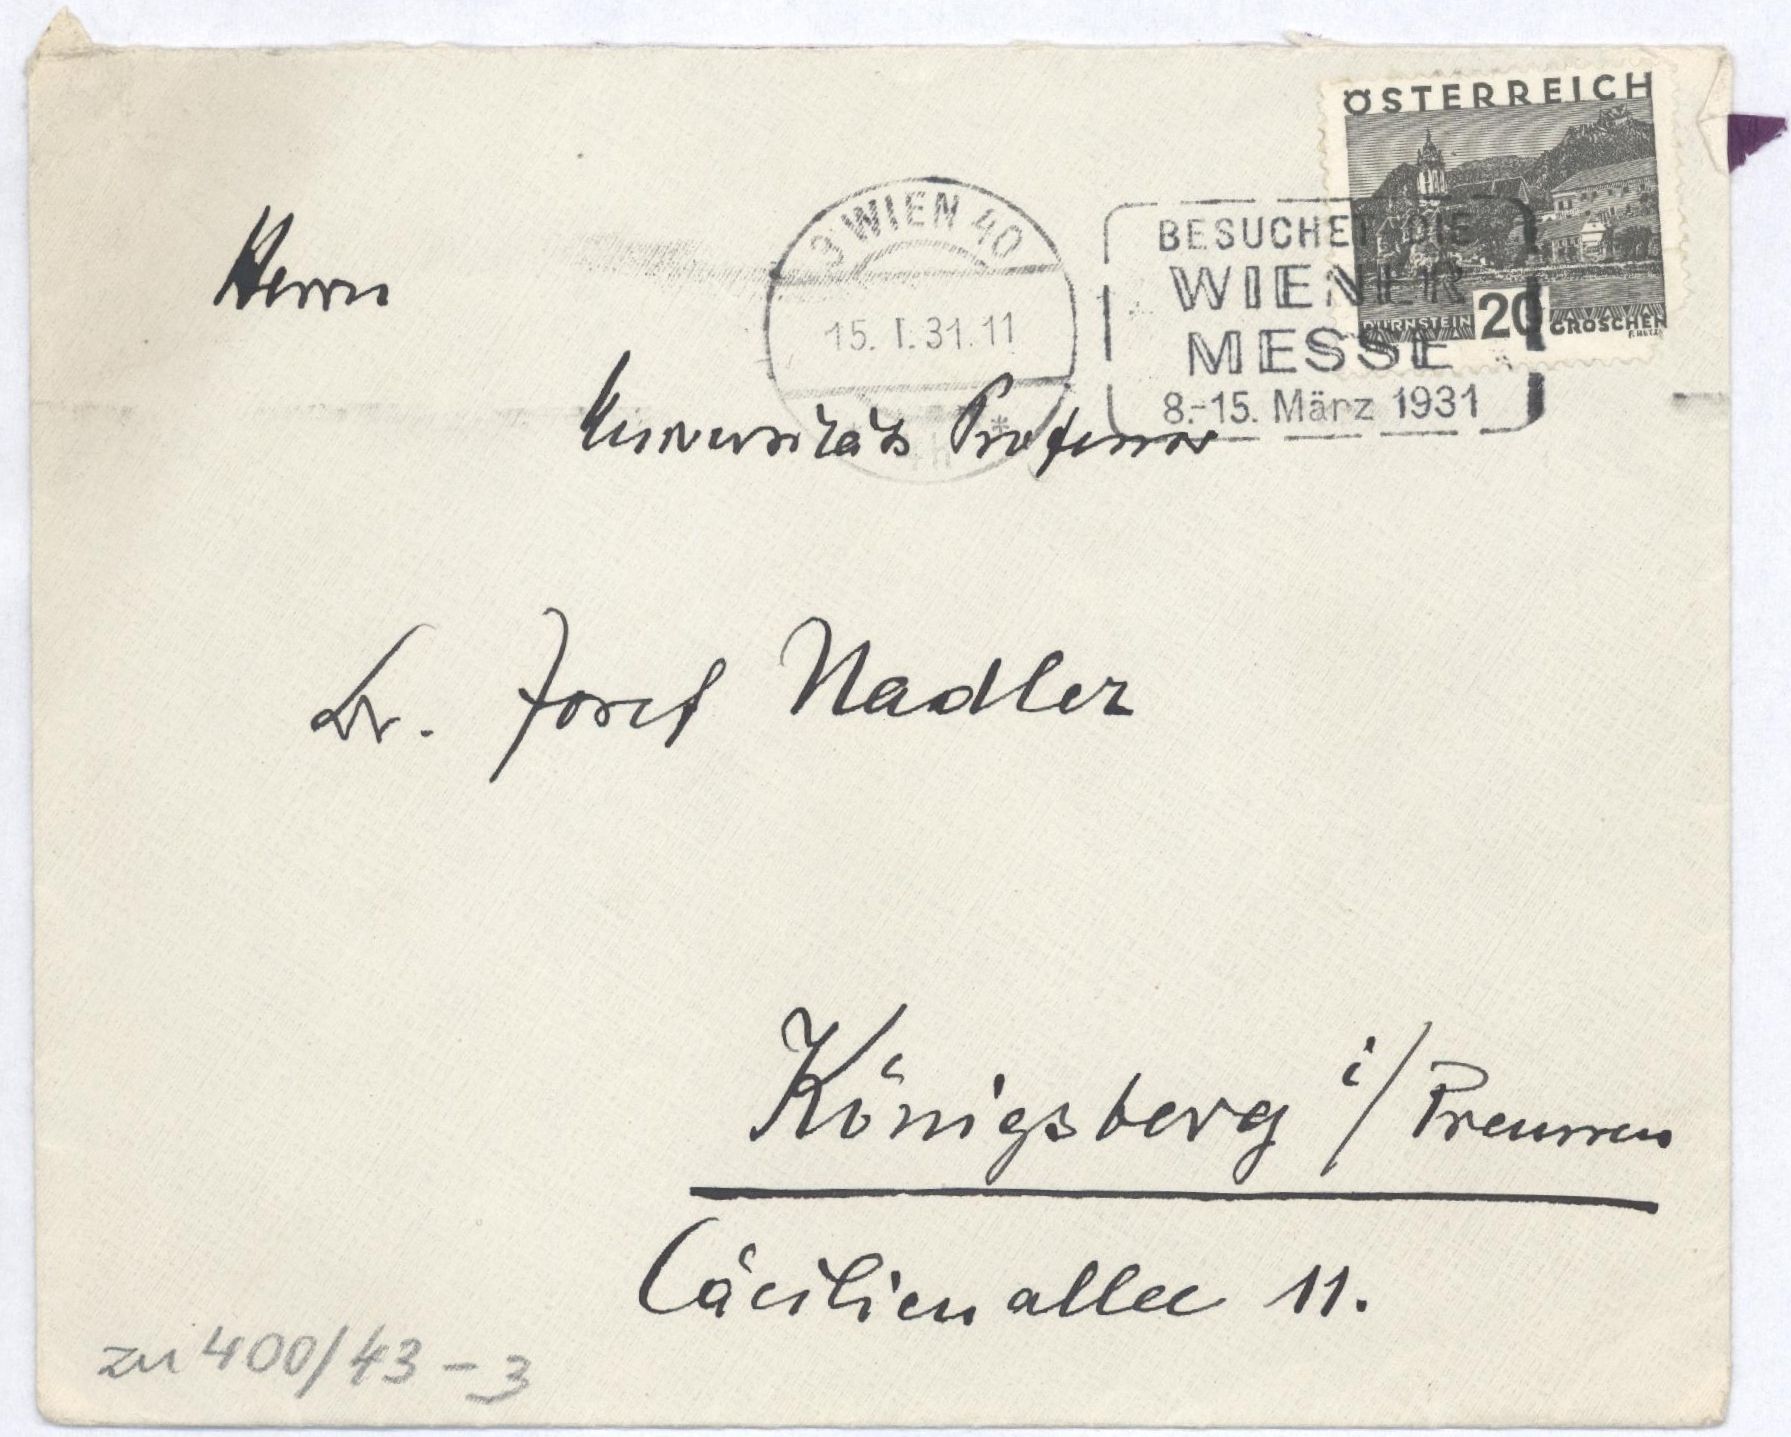 ÖSTERREICH
DÜRNSTEIN 20 GROSCHEN
9 WIEN 40
15. I. 31. 11
*
BESUCHET DIE
WIENER
MESSE
8.-15. März 1931
Herrn
Universitäts Professor
Dr. Josef Nadler
Königsberg i/Preussen
Cäcilienallee 11.
zu 400/43-3